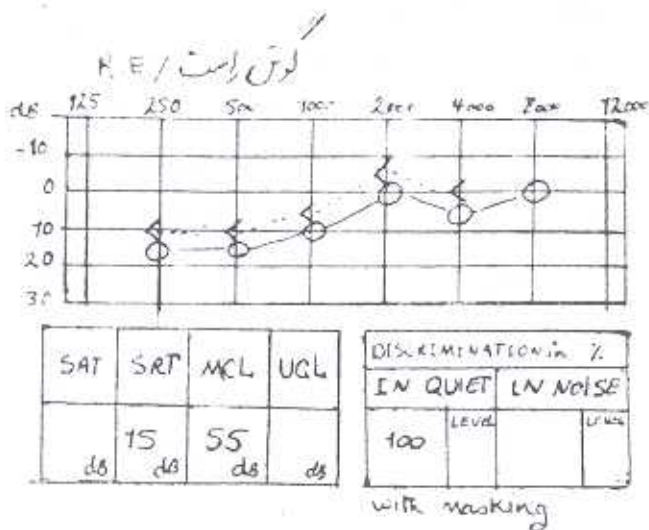 R.E / گوش راست
dB 125 250 500 1000 2000 4000 8000 12000
-10
0
10
20
30
SAT SRT MCL UCL
dB 15 dB 55 dB dB
DISCRIMINATION in %
IN QUIET IN NOISE
100 LEVEL LEVEL
with masking